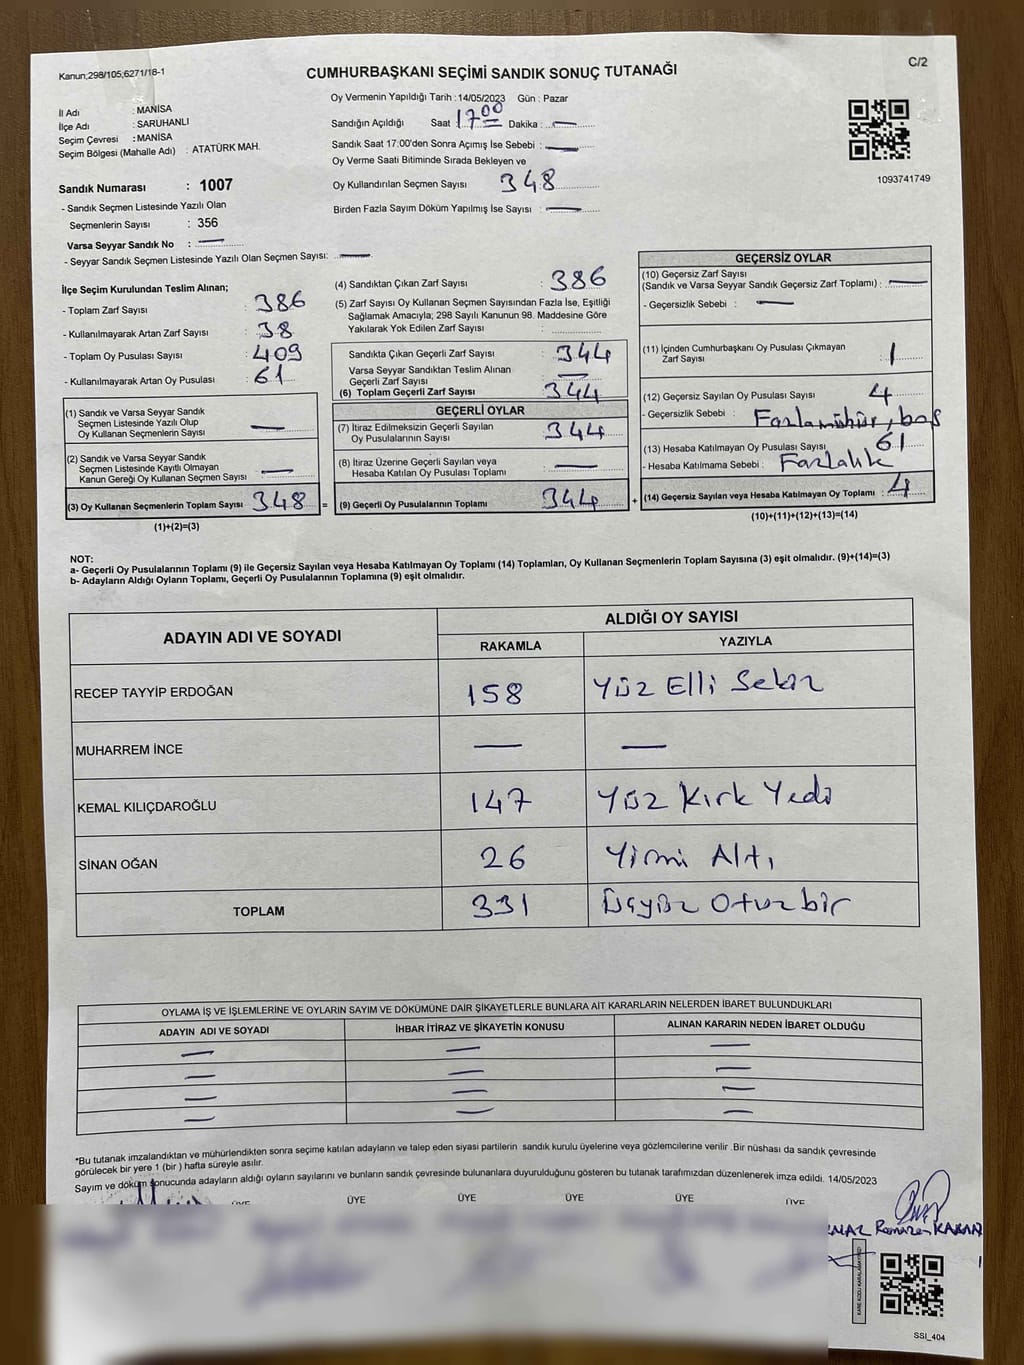 Kanun;298/105;6271/18-1
CUMHURBAŞKANI SEÇİMİ SANDIK SONUÇ TUTANAĞI
C/2
İl Adı : MANİSA
İlçe Adı : SARUHANLI
Seçim Çevresi : MANİSA
Seçim Bölgesi (Mahalle Adı) : ATATÜRK MAH.
Oy Vermenin Yapıldığı Tarih : 14/05/2023 Gün : Pazar
Sandığın Açıldığı Saat 17:00 Dakika : —
Sandık Saat 17:00'den Sonra Açımış İse Sebebi : —
Oy Verme Saati Bitiminde Sırada Bekleyen ve
Oy Kullandırılan Seçmen Sayısı 348
Birden Fazla Sayım Döküm Yapılmış İse Sayısı : —
1093741749
Sandık Numarası : 1007
- Sandık Seçmen Listesinde Yazılı Olan
Seçmenlerin Sayısı : 356
Varsa Seyyar Sandık No : —
- Seyyar Sandık Seçmen Listesinde Yazılı Olan Seçmen Sayısı: —
İlçe Seçim Kurulundan Teslim Alınan;
- Toplam Zarf Sayısı : 386
- Kullanılmayarak Artan Zarf Sayısı : 38
- Toplam Oy Pusulası Sayısı : 409
- Kullanılmayarak Artan Oy Pusulası : 61
(1) Sandık ve Varsa Seyyar Sandık
Seçmen Listesinde Yazılı Olup
Oy Kullanan Seçmenlerin Sayısı —
(2) Sandık ve Varsa Seyyar Sandık
Seçmen Listesinde Kayıtlı Olmayan
Kanun Gereği Oy Kullanan Seçmen Sayısı —
(3) Oy Kullanan Seçmenlerin Toplam Sayısı 348 =
(1)+(2)=(3)
(4) Sandıktan Çıkan Zarf Sayısı : 386
(5) Zarf Sayısı Oy Kullanan Seçmen Sayısından Fazla İse, Eşitliği
Sağlamak Amacıyla; 298 Sayılı Kanunun 98. Maddesine Göre
Yakılarak Yok Edilen Zarf Sayısı :
Sandıkta Çıkan Geçerli Zarf Sayısı : 344
Varsa Seyyar Sandıktan Teslim Alınan
Geçerli Zarf Sayısı : —
(6) Toplam Geçerli Zarf Sayısı : 344
GEÇERLİ OYLAR
(7) İtiraz Edilmeksizin Geçerli Sayılan
Oy Pusulalarının Sayısı : 344
(8) İtiraz Üzerine Geçerli Sayılan veya
Hesaba Katılan Oy Pusulası Toplamı : —
(9) Geçerli Oy Pusulalarının Toplamı : 344 +
GEÇERSİZ OYLAR
(10) Geçersiz Zarf Sayısı
(Sandık ve Varsa Seyyar Sandık Geçersiz Zarf Toplamı) : —
- Geçersizlik Sebebi : —
(11) İçinden Cumhurbaşkanı Oy Pusulası Çıkmayan
Zarf Sayısı : 1
(12) Geçersiz Sayılan Oy Pusulası Sayısı : 4
- Geçersizlik Sebebi : Fazlamühür, boş
(13) Hesaba Katılmayan Oy Pusulası Sayısı : 61
- Hesaba Katılmama Sebebi : Fazlalık
(14) Geçersiz Sayılan veya Hesaba Katılmayan Oy Toplamı : 4
(10)+(11)+(12)+(13)=(14)
NOT:
a- Geçerli Oy Pusulalarının Toplamı (9) ile Geçersiz Sayılan veya Hesaba Katılmayan Oy Toplamı (14) Toplamları, Oy Kullanan Seçmenlerin Toplam Sayısına (3) eşit olmalıdır. (9)+(14)=(3)
b- Adayların Aldığı Oyların Toplamı, Geçerli Oy Pusulalarının Toplamına (9) eşit olmalıdır.
ADAYIN ADI VE SOYADI ALDIĞI OY SAYISI
RAKAMLA YAZIYLA
RECEP TAYYİP ERDOĞAN 158 Yüz Elli Sekiz
MUHARREM İNCE — —
KEMAL KILIÇDAROĞLU 147 Yüz Kırk Yedi
SİNAN OĞAN 26 Yirmi Altı
TOPLAM 331 Üçyüz Otuzbir
OYLAMA İŞ VE İŞLEMLERİNE VE OYLARIN SAYIM VE DÖKÜMÜNE DAİR ŞİKAYETLERLE BUNLARA AİT KARARLARIN NELERDEN İBARET BULUNDUKLARI
ADAYIN ADI VE SOYADI İHBAR İTİRAZ VE ŞİKAYETİN KONUSU ALINAN KARARIN NEDEN İBARET OLDUĞU
— — —
— — —
— — —
— — —
*Bu tutanak imzalandıktan ve mühürlendikten sonra seçime katılan adayların ve talep eden siyasi partilerin sandık kurulu üyelerine veya gözlemcilerine verilir .Bir nüshası da sandık çevresinde
görülecek bir yere 1 (bir ) hafta süreyle asılır.
Sayım ve döküm sonucunda adayların aldığı oyların sayılarını ve bunların sandık çevresinde bulunanlara duyurulduğunu gösteren bu tutanak tarafımızdan düzenlenerek imza edildi. 14/05/2023
ÜYE ÜYE ÜYE ÜYE ÜYE ÜYE
Ramazan KAHAN
SSI_404